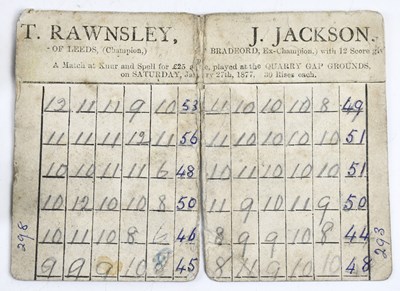 T. RAWNSLEY, J. JACKSON,
OF LEEDS, (Champion,) BRADFORD, Ex-Champion,) with 12 Score
A Match at Knur and Spell for £25 played at the QUARRY GAP GROUNDS,
on SATURDAY, 27th, 1877. 30 Rises each.
12 11 11 9 10 53 11 10 10 10 8 49
11 11 11 12 11 56 11 10 10 10 10 51
10 10 11 11 6 48 10 10 10 10 11 51
10 12 10 10 8 50 11 9 10 11 9 50
10 11 10 8 46 8 9 10 9 8 44
9 9 9 10 8 45 8 11 9 10 10 48
298 293